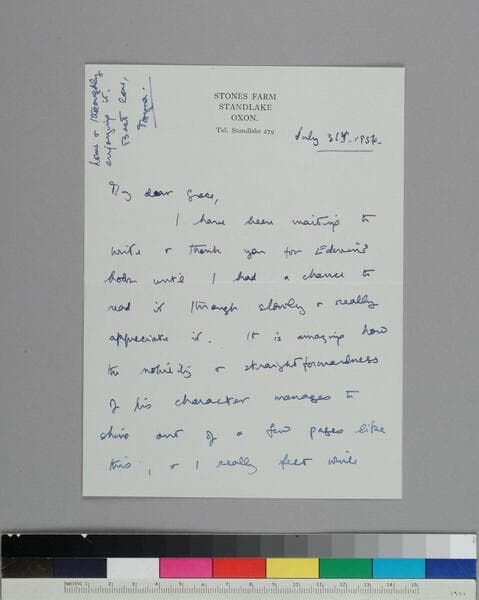 home & thoroughly
enjoying it.
Best love,
STONES FARM
STANDLAKE
OXON.
Tel. Standlake 279
July 31st. 1954.
My dear Grace,
I have been waiting to
write & thank you for Edwin's
book until I had a chance to
read it through slowly & really
appreciate it. It is amazing how
the nobility & straightforwardness
of his character manages to
shine out of a few pages like
this, & I really felt while